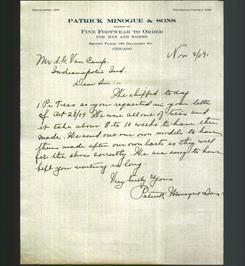 PATRICK MINOGUE & SONS
FINE FOOTWEAR TO ORDER
FOR MEN AND WOMEN
CHICAGO
Nov 3/09.
Mr. A. G. Van Camp.
Indianapolis Ind.
Dear Sir:
We shipped to day
1 Pr Trees as you requested in your letter
of Oct 28/09. We were all out of trees and
it takes about 8 to 10 weeks to have them
made. We send out our own models to have
them made after our own lasts so they will
fit the shoes correctly. We are sorry to have
kept you waiting so long.
Very truly Yours
Patrick Minogue & Sons